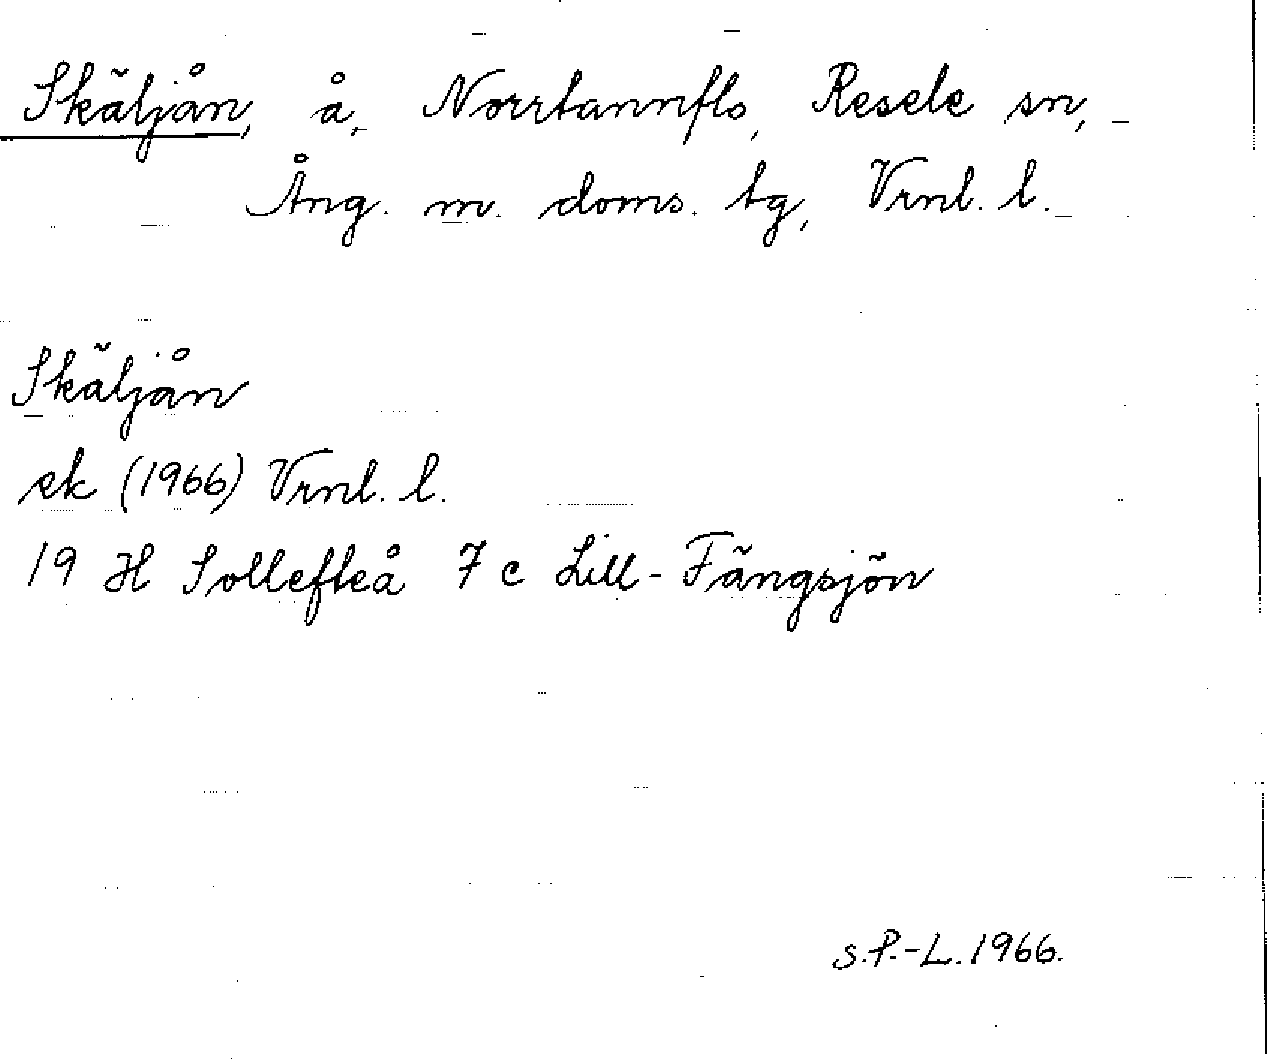 Skäljån, å, Norrtannflo, Resele sn,
Ång. m. doms. tg, Vrnl. l.
Skäljån
ek (1966) Vrnl. l.
19 H Sollefteå 7 c Lill-Fängsjön
S.P.-L. 1966.